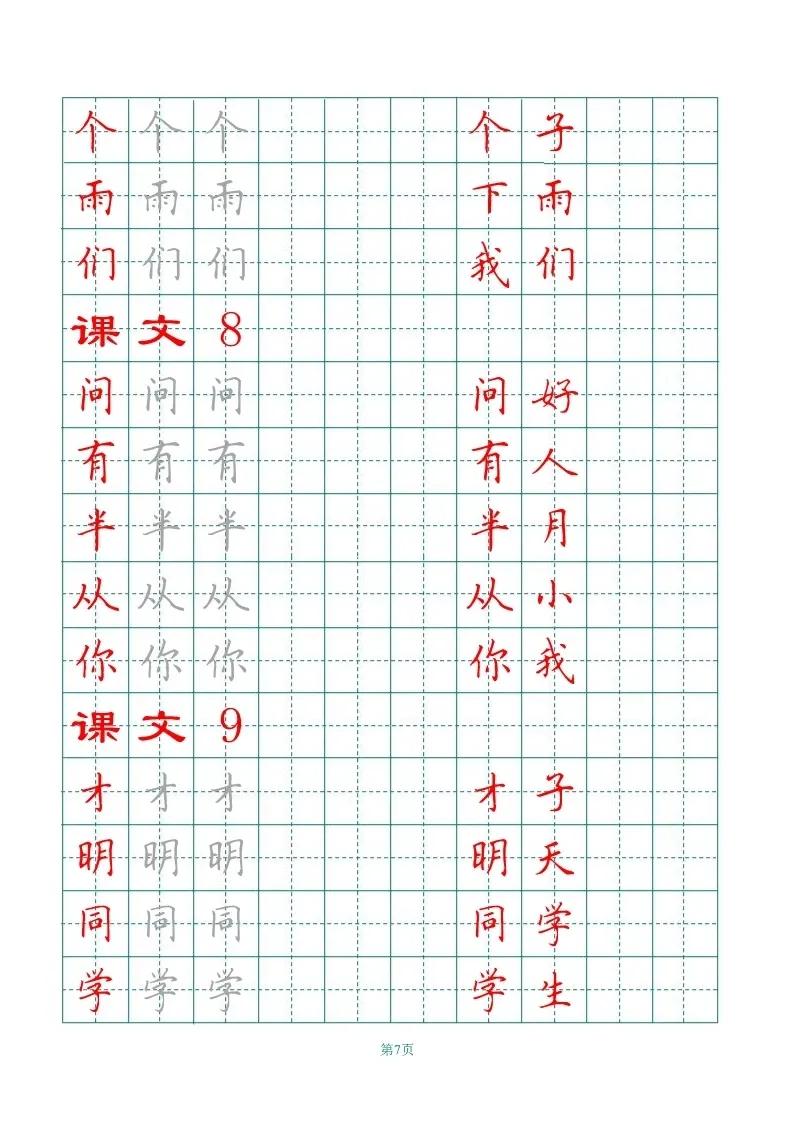 个 个 个 个 子
雨 雨 雨 下 雨
们 们 们 我 们
课 文 8
问 问 问 问 好
有 有 有 有 人
半 半 半 半 月
从 从 从 从 小
你 你 你 你 我
课 文 9
才 才 才 才 子
明 明 明 明 天
同 同 同 同 学
学 学 学 学 生
第7页